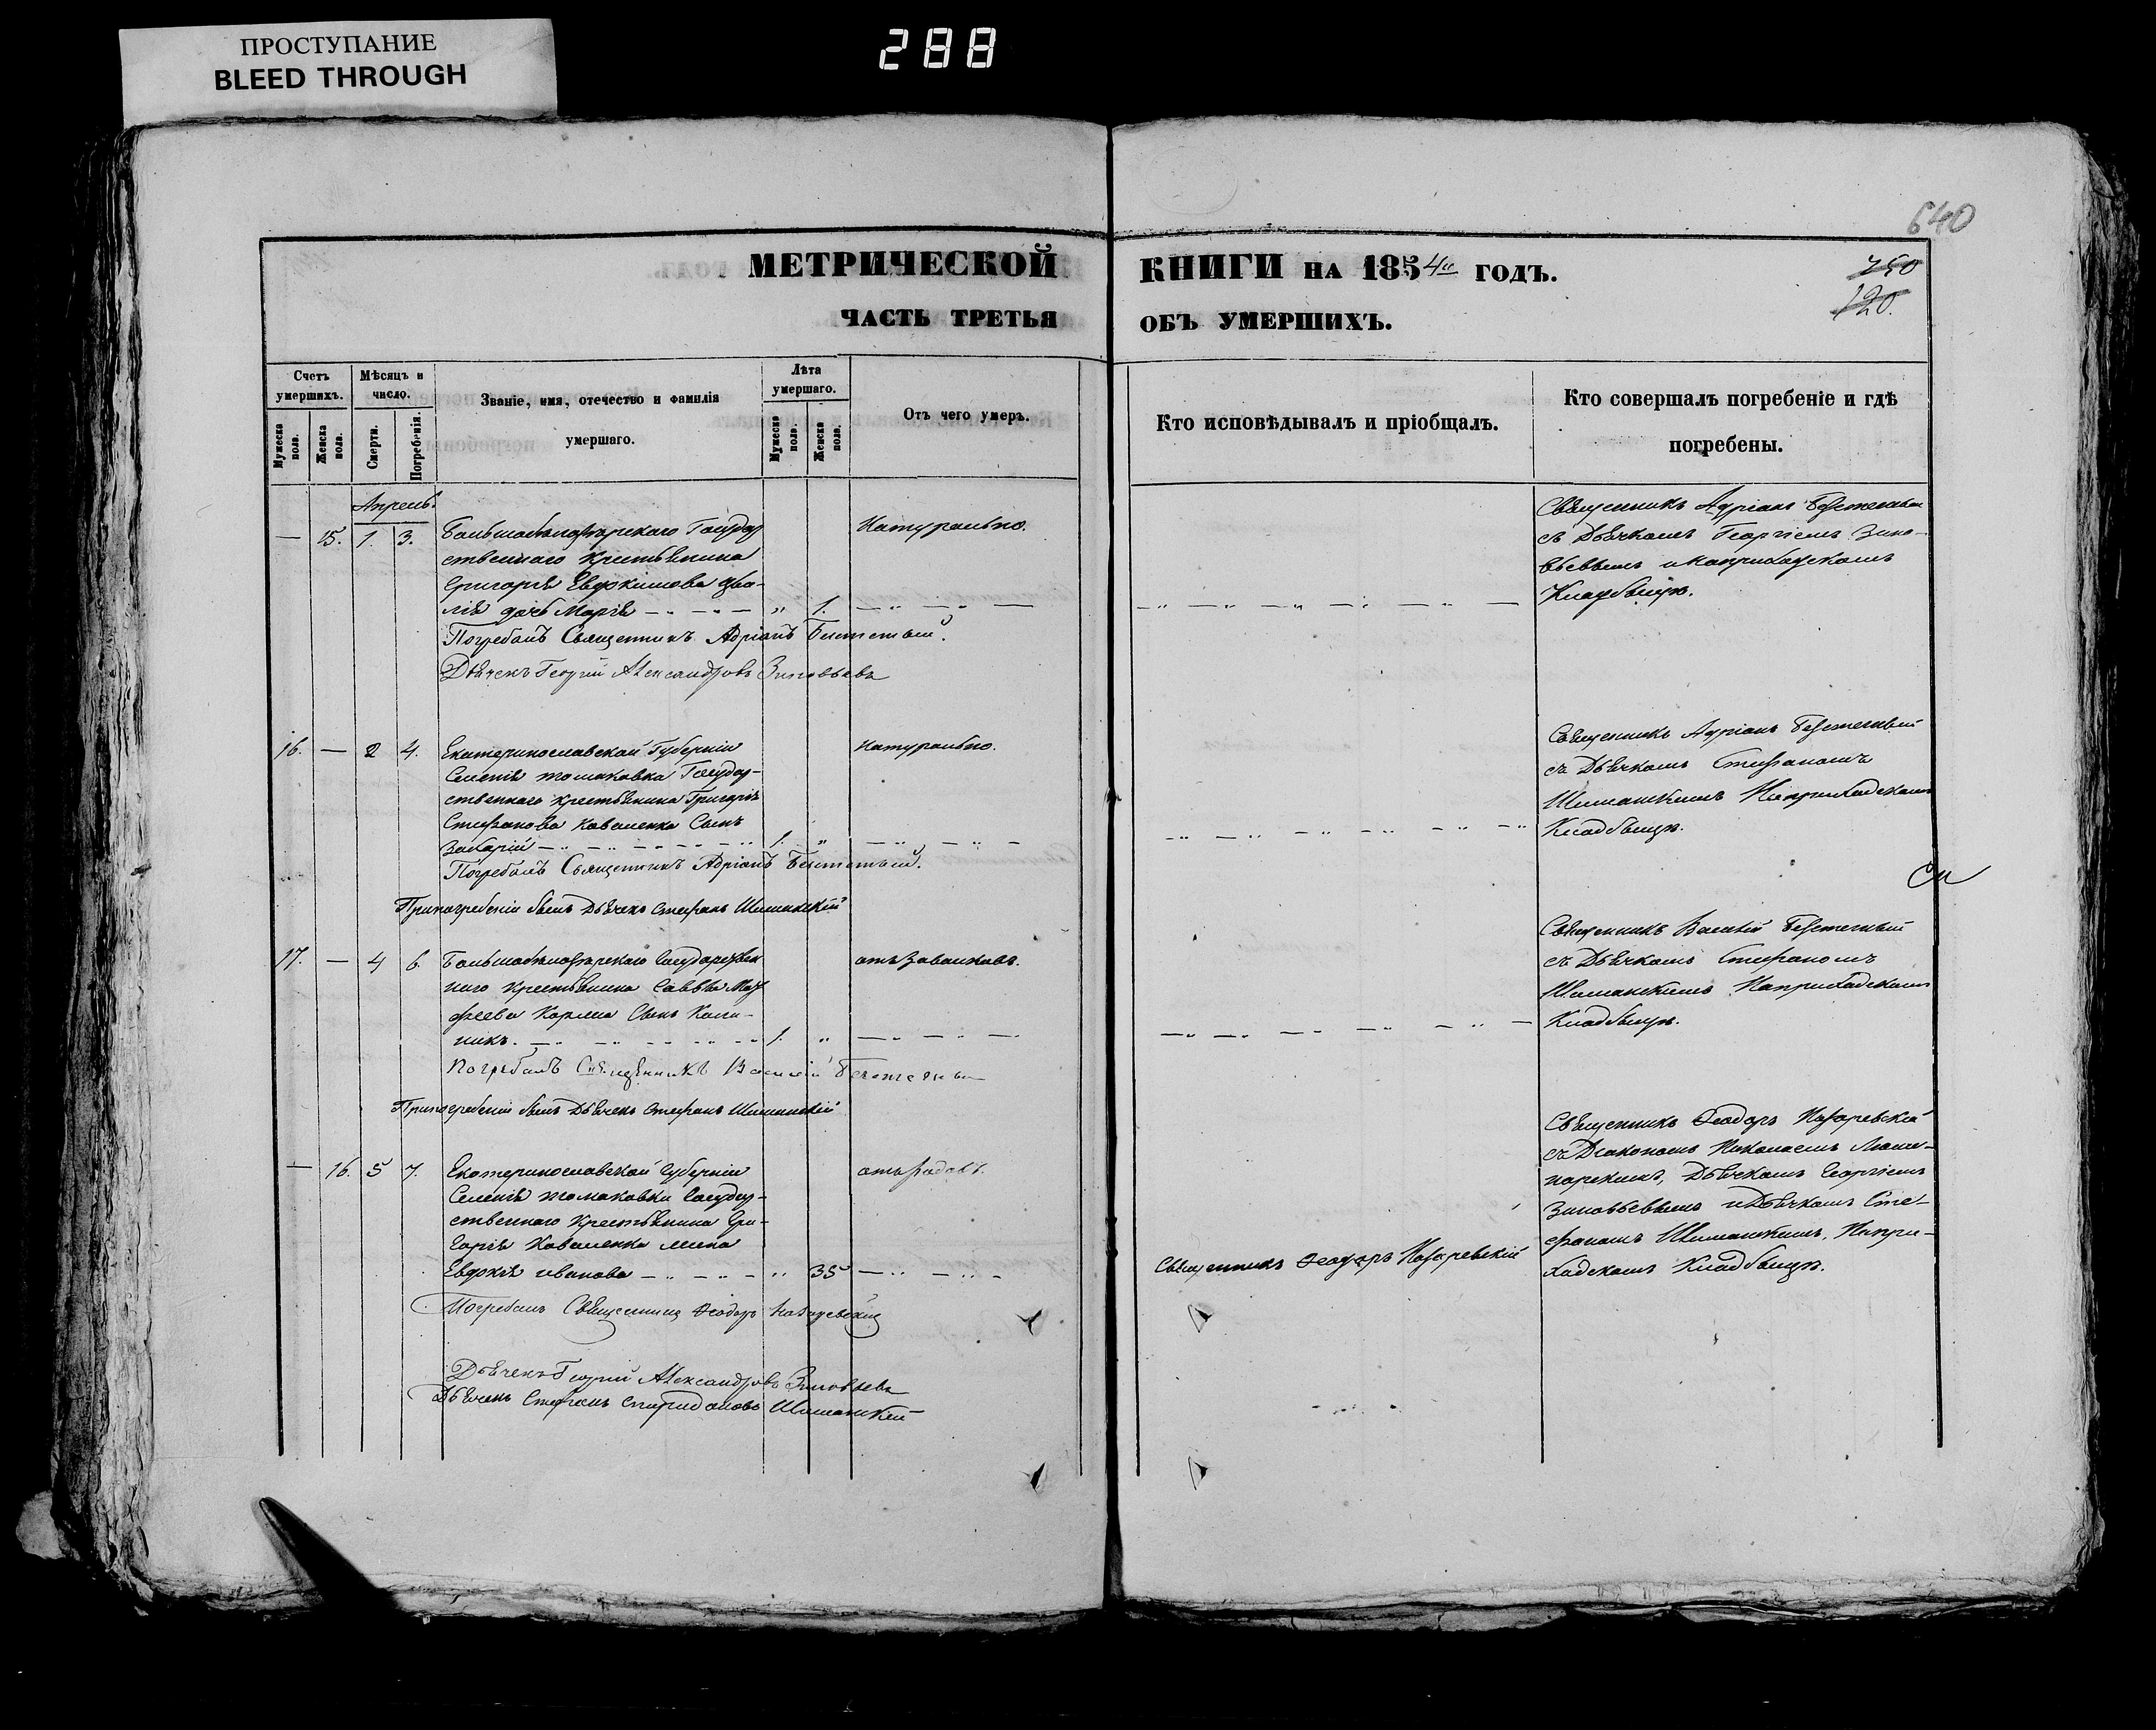 ПРОСТУПАНИЕ
BLEED THROUGH
288
640
МЕТРИЧЕСКОЙ
КНИГИ НА 1854й ГОДЪ.
750
120.
ЧАСТЬ ТРЕТЬЯ
ОБЪ УМЕРШИХЪ.
Счетъ умершихъ.
Мужеска пола.
Женска пола.
Мѣсяцъ и число.
Смерти.
Погребенія.
Званіе, имя, отечество и фамилія умершаго.
Лѣта умершаго.
Мужеска пола.
Женска пола.
Отъ чего умеръ.
Кто исповѣдывалъ и пріобщалъ.
Кто совершалъ погребеніе и гдѣ погребены.
Апрель.
— 15. 1. 3.
Государ
ственнаго крестьянина
Григорія Евдокимова
дочь Марія — „ 1.
Натурально.
Погребалъ Священникъ Адріанъ
Дьячекъ Георгій Александровъ Зиновьевъ
Священникъ Адріанъ
съ Дьячкомъ Георгіемъ Зино-
вьевымъ наприходскомъ
Кладбищѣ.
16. — 2 4.
Екатеринославской Губерніи
Селенія томаковка Государ-
ственнаго крестьянина Григорія
Стефанова Коваленка Сынъ
Захарій — 1. „
Натурально.
Погребалъ Священникъ Адріанъ
Припогребеніи былъ Дьячекъ Стефанъ Шиманскій
Священникъ Адріанъ
съ Дьячкомъ Стефаномъ
Шиманскимъ Наприходскомъ
Кладбищѣ.
17. — 4 6.
Государствен
наго крестьянина Саввы
Сынъ Кали-
никъ. — 1. „
Погребалъ Священникъ Василій
Припогребеніи былъ Дьячекъ Стефанъ Шиманскій
Священникъ Василій
съ Дьячкомъ Стефаномъ
Шиманскимъ Наприходскомъ
Кладбищѣ.
— 16. 5 7.
Екатеринославской Губерніи
Селенія томаковки Государ-
ственнаго Крестьянина Гри-
горія Коваленка жена
Евдокія иванова — „ 35
отъ родовъ.
Погребалъ Священникъ Феодоръ Назаревскій
Дьячекъ Георгій Александровъ Зиновьевъ
Дьячекъ Стефанъ Спиридоновъ Шиманскій
Священникъ Феодоръ Назаревскій
Священникъ Феодоръ Назаревскій
съ Діакономъ Николаемъ
Дьячкомъ Георгіемъ
Зиновьевымъ и Дьячкомъ Сте-
фаномъ Шиманскимъ, Напри-
ходскомъ Кладбищѣ.